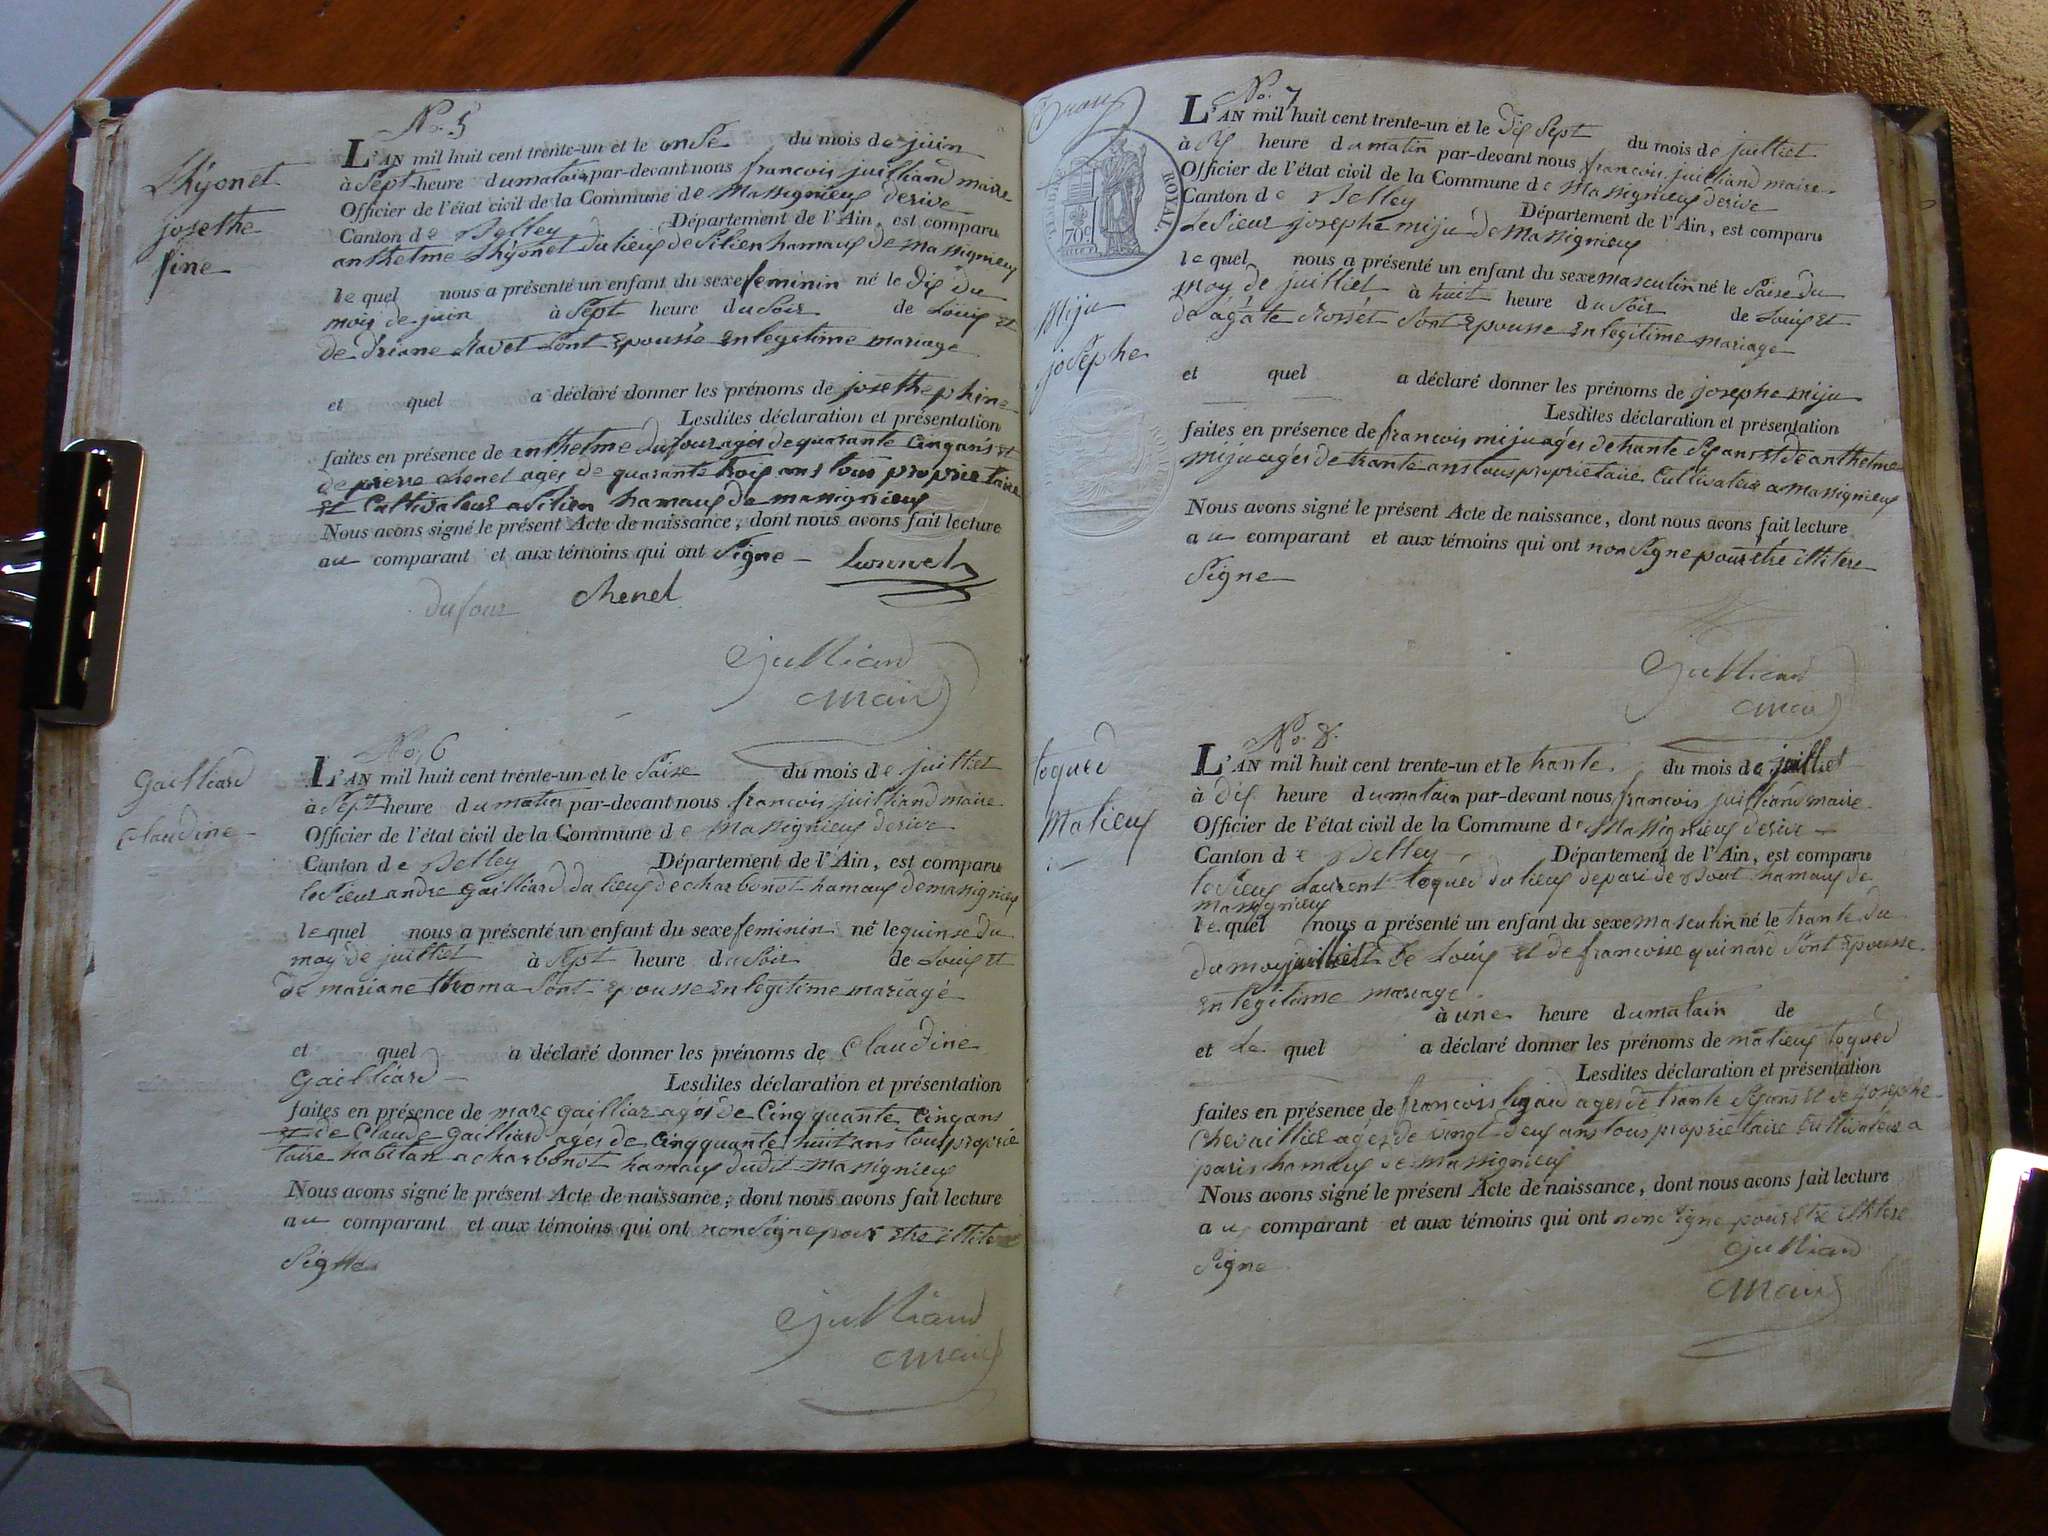 No. 5
Lhÿonet
josethe
fine
L'AN mil huit cent trente-un et le onse du mois de juin
à Sept heure du matain par-devant nous francois juilliand maire
Officier de l'état civil de la Commune de Massignieux derive
Canton de Belley Département de l'Ain, est comparu
anthelme Lhÿonet du lieux de Silien hamaux de Massignieux
lequel nous a présenté un enfant du sexe feminin né le dix du
mois de juin à Sept heure du Soir de Louis et
de driane Ravet Sont Epoussé En legitime mariage
et quel a déclaré donner les prénoms de josethephine
Lesdites déclaration et présentation
faites en présence de anthelme dufour agés de quarante Cinq ans et
de pierre Chenel agés de quarante trois ans tous proprietaire
et Cultivateur a Silien hamaux de massignieux
Nous avons signé le présent Acte de naissance, dont nous avons fait lecture
au comparant et aux témoins qui ont Signe
dufour Chenel
Julliand
maire
No. 6
Gailliard
Claudine
L'AN mil huit cent trente-un et le Saise du mois de juilliet
à Sept heure du matin par-devant nous francois juilliand maire
Officier de l'état civil de la Commune de Massignieux derive
Canton de Belley Département de l'Ain, est comparu
le Sieur andre Gailliard du lieux de charbonot hamaux de massignieux
lequel nous a présenté un enfant du sexe feminin né le quinse du
moy de juilliet à Sept heure du Soir de Louis et
de mariane thoma Sont Epousse En legitime mariagé
et quel a déclaré donner les prénoms de Claudine
Gailliard Lesdites déclaration et présentation
faites en présence de marc gailliar agés de Cinqquante Cinq ans
et de Claude Gailliard agés de Cinqquante huit ans tous proprie
taire habitan a charbonot hamaux dudit Massignieux
Nous avons signé le présent Acte de naissance, dont nous avons fait lecture
au comparant et aux témoins qui ont non Signe pour Etre illite
Signe
Julliand
maire
ROYAL
70c
No. 7
Miju
joSephe
L'AN mil huit cent trente-un et le Dix Sept du mois de juilliet
à dix heure du matin par-devant nous francois juilliand maire
Officier de l'état civil de la Commune de Massignieux derive
Canton de Belley Département de l'Ain, est comparu
le Sieur josephe miju de Massignieux
lequel nous a présenté un enfant du sexe masculin né le Saise du
moy de juilliet à huit heure du Soir de Louis et
de agate Rosset Sont Epousse En legitime mariage
et quel a déclaré donner les prénoms de josephe miju
Lesdites déclaration et présentation
faites en présence de francois miju agés de trante Six ans et de anthelme
miju agés de trante ans tous proprietaire Cultivateur a Massignieux
Nous avons signé le présent Acte de naissance, dont nous avons fait lecture
au comparant et aux témoins qui ont non Signe pour être illitere
Signe
Julliand
maire
No. 8.
toqued
Matieux
L'AN mil huit cent trente-un et le trante du mois de juilliet
à dix heure du matain par-devant nous francois juilliand maire
Officier de l'état civil de la Commune de Massignieux derive
Canton de Belley Département de l'Ain, est comparu
le Sieur Laurent toqued du lieux de pari hamaux de
massignieux
lequel nous a présenté un enfant du sexe masculin né le trante du
du moy juilliet de Louis et de francoisse quinard Sont Epousse
En legitime mariage
à une heure du matain de
et Le quel a déclaré donner les prénoms de matieux toqued
Lesdites déclaration et présentation
faites en présence de francois agés de trante Six ans et de Josephe
Chevaillier agés de vingt-deux ans tous proprietaire Cultivateur a
paris hamaux de Massignieux
Nous avons signé le présent Acte de naissance, dont nous avons fait lecture
au comparant et aux témoins qui ont non Signe pour Etre illitere
Signe
Julliand
maire